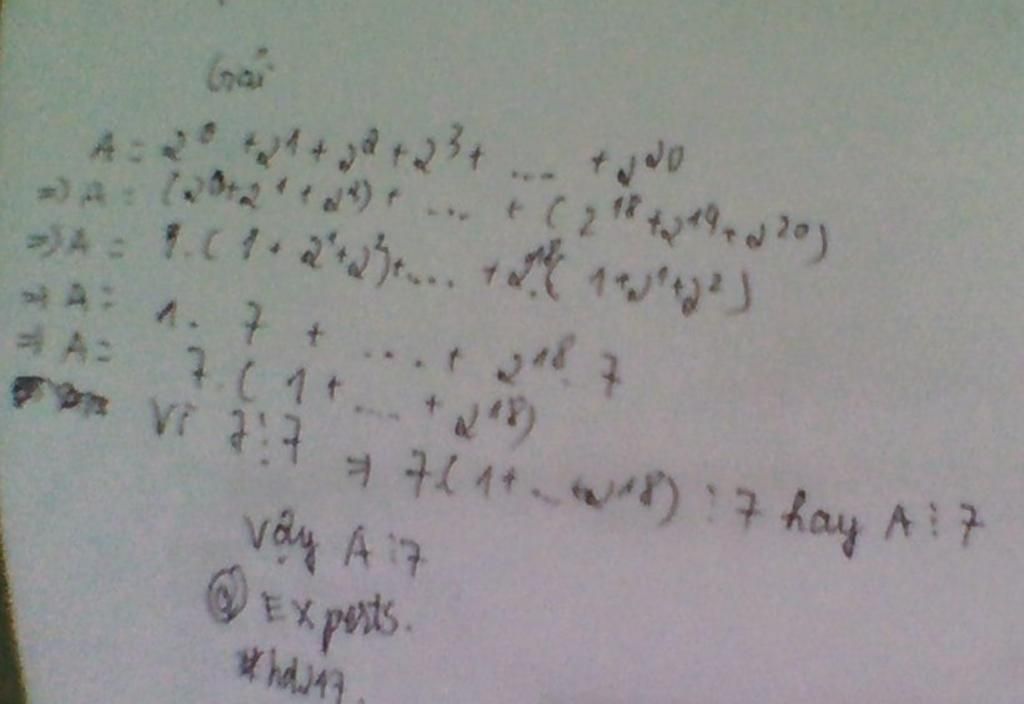 Giải
A = 2^0 + 2^1 + 2^2 + 2^3 + .... + 2^20
=> A = (2^0 + 2^1 + 2^2) + .... + (2^18 + 2^19 + 2^20)
=> A = 1. (1 + 2^1 + 2^2) + .... + 2^18. (1 + 2^1 + 2^2)
=> A = 1. 7 + .... + 2^18. 7
=> A = 7. (1 + .... + 2^18)
Vì 7 ⋮ 7
=> 7 (1 + ... + 2^18) ⋮ 7 hay A ⋮ 7
Vậy A ⋮ 7
@ Experts.